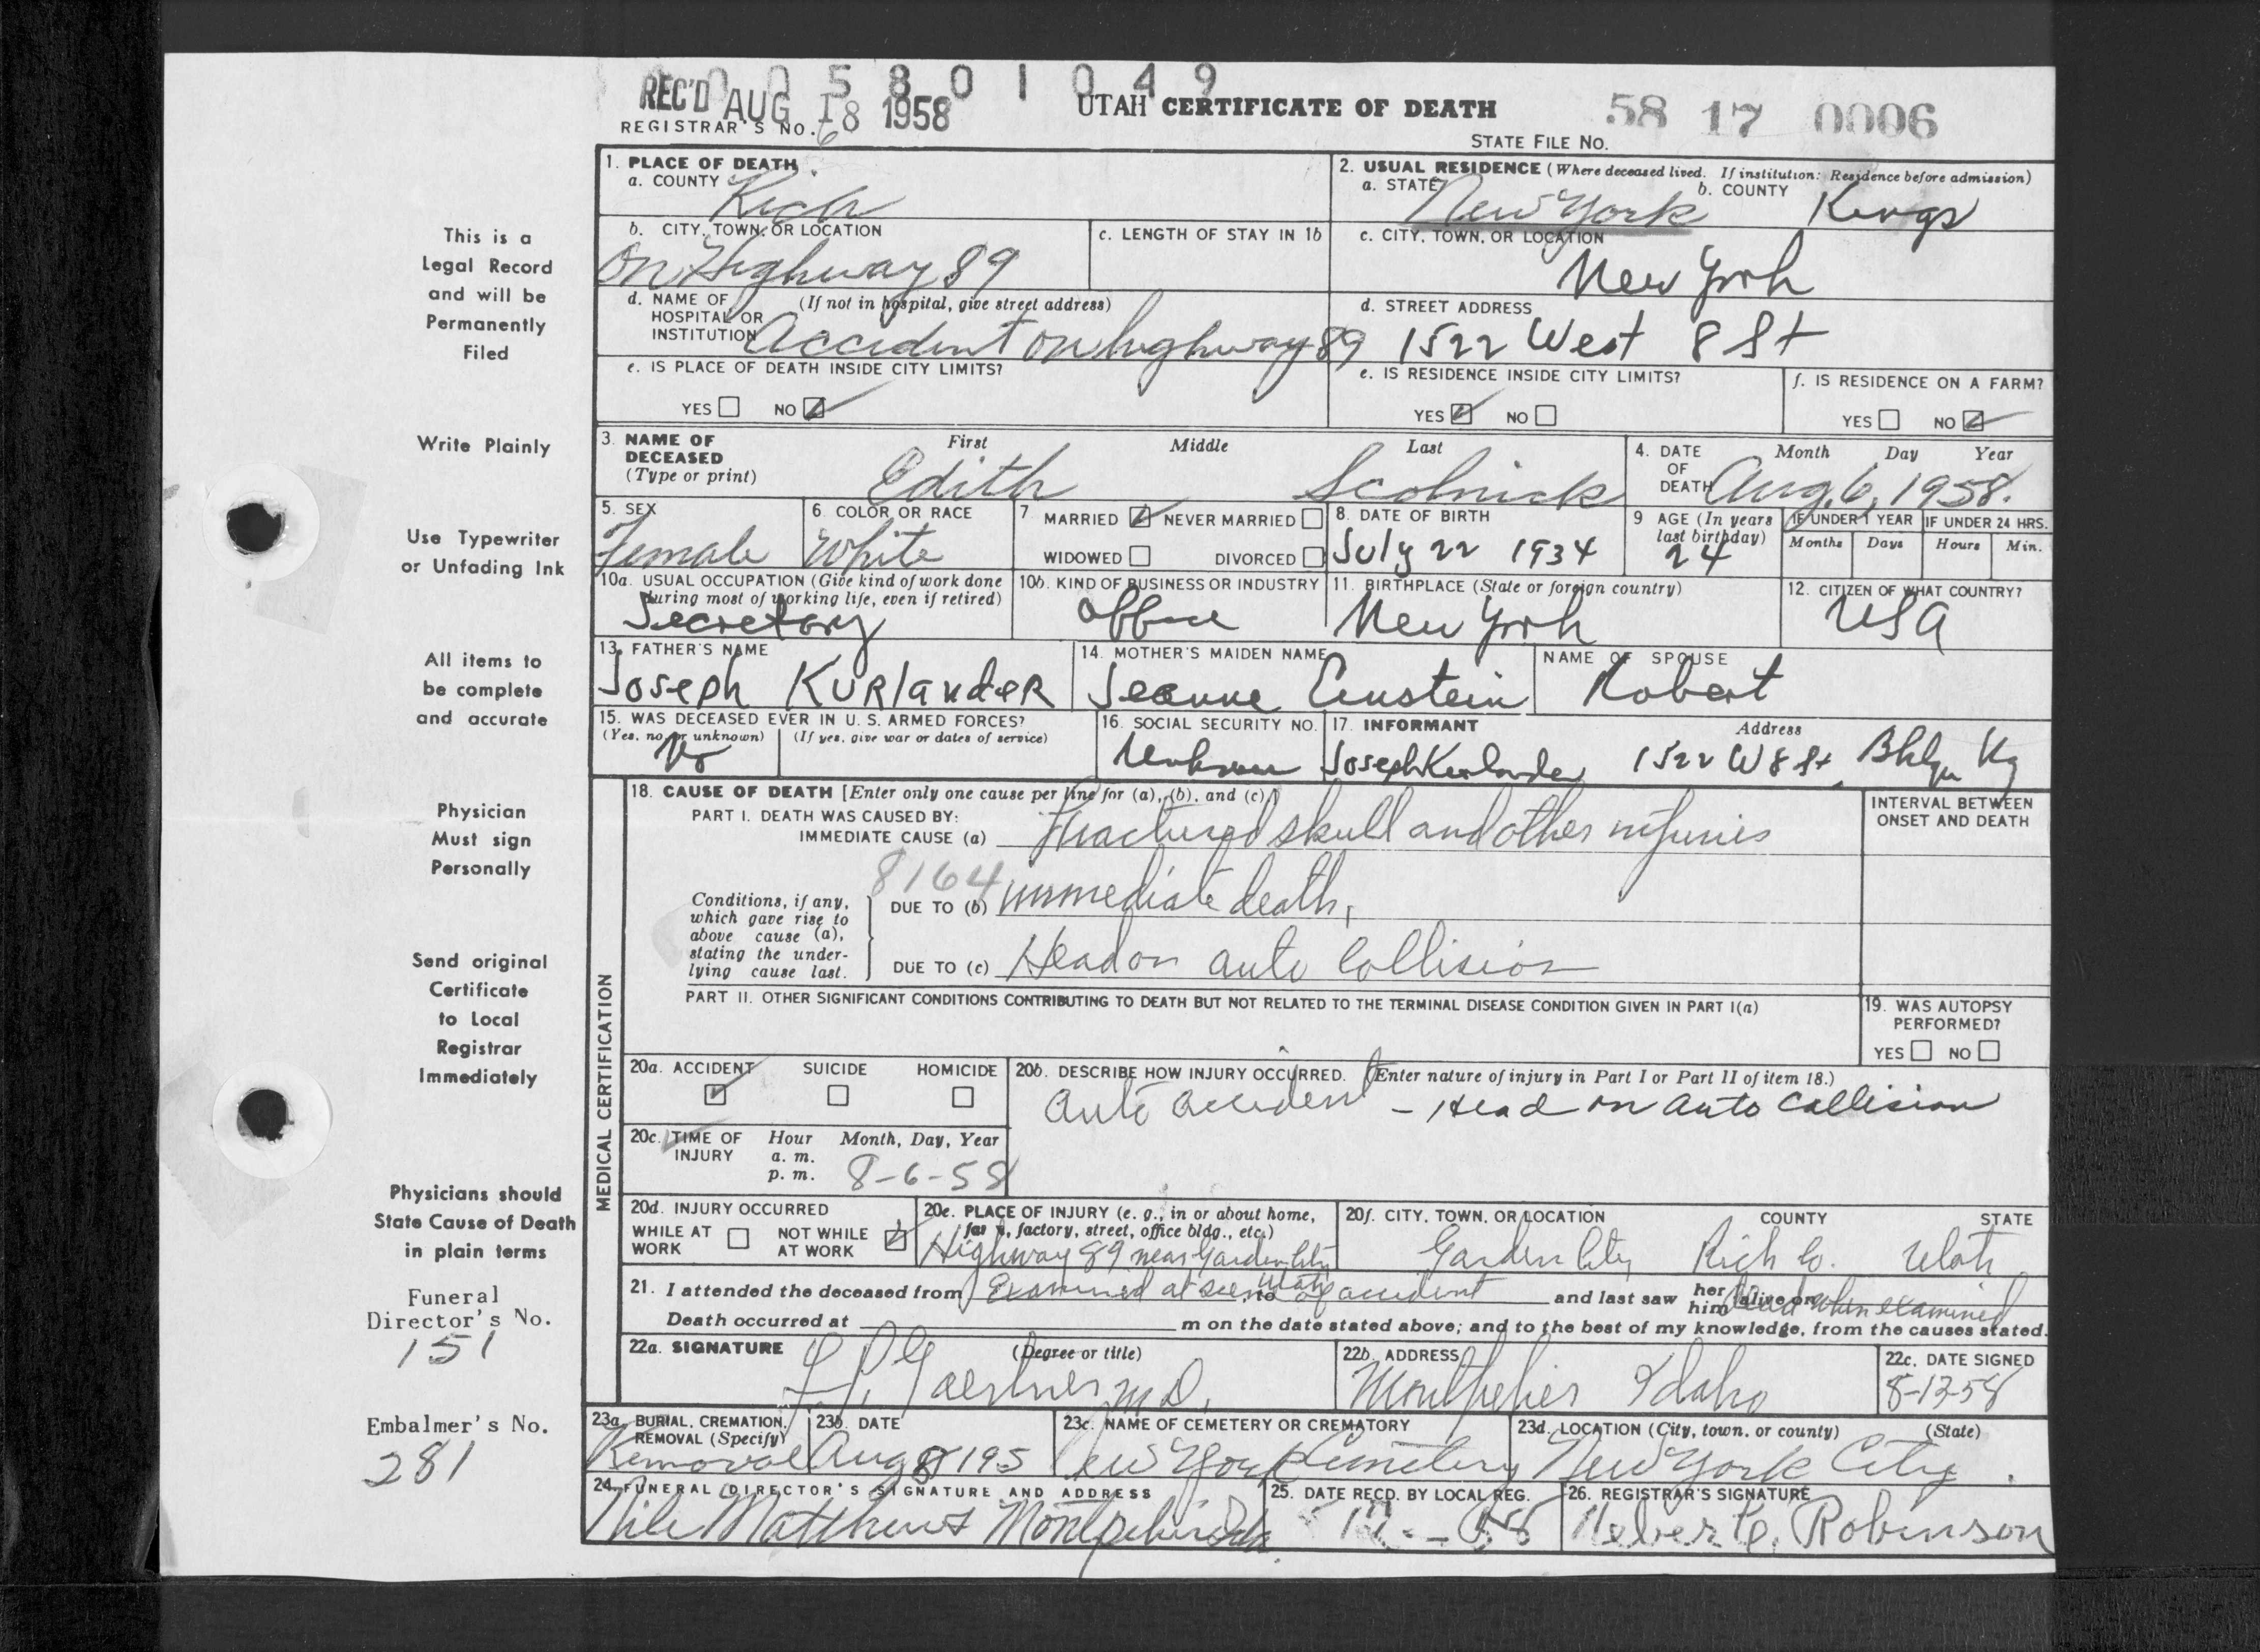 0005801049
REC'D AUG 18 1958
UTAH CERTIFICATE OF DEATH
58 17 0006
REGISTRAR'S NO. 6
STATE FILE NO.
This is a
Legal Record
and will be
Permanently
Filed
Write Plainly
Use Typewriter
or Unfading Ink
All items to
be complete
and accurate
Physician
Must sign
Personally
Send original
Certificate
to Local
Registrar
Immediately
Physicians should
State Cause of Death
in plain terms
Funeral
Director's No.
151
Embalmer's No.
281
1. PLACE OF DEATH
a. COUNTY Rich
2. USUAL RESIDENCE (Where deceased lived. If institution: Residence before admission)
a. STATE New York b. COUNTY Kings
b. CITY, TOWN, OR LOCATION
On Highway 89
c. LENGTH OF STAY IN 1b
c. CITY, TOWN, OR LOCATION
New York
d. NAME OF HOSPITAL OR INSTITUTION (If not in hospital, give street address)
Accident on highway 89
d. STREET ADDRESS
1522 West 8 St
e. IS PLACE OF DEATH INSIDE CITY LIMITS?
YES NO
e. IS RESIDENCE INSIDE CITY LIMITS?
YES NO
f. IS RESIDENCE ON A FARM?
YES NO
3. NAME OF DECEASED (Type or print)
First Middle Last
Edith Scolnick
4. DATE OF DEATH Month Day Year
Aug. 6, 1958.
5. SEX
Female
6. COLOR OR RACE
White
7. MARRIED NEVER MARRIED
WIDOWED DIVORCED
8. DATE OF BIRTH
July 22 1934
9 AGE (In years last birthday)
24
IF UNDER 1 YEAR IF UNDER 24 HRS.
Months Days Hours Min.
10a. USUAL OCCUPATION (Give kind of work done during most of working life, even if retired)
Secretary
10b. KIND OF BUSINESS OR INDUSTRY
office
11. BIRTHPLACE (State or foreign country)
New York
12. CITIZEN OF WHAT COUNTRY?
USA
13. FATHER'S NAME
Joseph Kurlander
14. MOTHER'S MAIDEN NAME
Jeanne Einstein
NAME OF SPOUSE
Robert
15. WAS DECEASED EVER IN U. S. ARMED FORCES?
(Yes, no, or unknown) (If yes, give war or dates of service)
No
16. SOCIAL SECURITY NO.
Unknown
17. INFORMANT Address
Joseph Kurlander 1522 W 8 St
MEDICAL CERTIFICATION
18. CAUSE OF DEATH [Enter only one cause per line for (a), (b), and (c).]
PART I. DEATH WAS CAUSED BY:
IMMEDIATE CAUSE (a) Fractured skull and other injuries
INTERVAL BETWEEN ONSET AND DEATH
8164
Conditions, if any, which gave rise to above cause (a), stating the underlying cause last.
DUE TO (b) immediate death,
DUE TO (c) Head on auto collision
PART II. OTHER SIGNIFICANT CONDITIONS CONTRIBUTING TO DEATH BUT NOT RELATED TO THE TERMINAL DISEASE CONDITION GIVEN IN PART I(a)
19. WAS AUTOPSY PERFORMED?
YES NO
20a. ACCIDENT SUICIDE HOMICIDE
20b. DESCRIBE HOW INJURY OCCURRED. (Enter nature of injury in Part I or Part II of item 18.)
Auto accident - Head on auto collision
20c. TIME OF INJURY Hour Month, Day, Year
a. m.
p. m. 8-6-58
20d. INJURY OCCURRED
WHILE AT WORK NOT WHILE AT WORK
20e. PLACE OF INJURY (e. g., in or about home, farm, factory, street, office bldg., etc.)
Highway 89 near Garden City
Utah
20f. CITY, TOWN, OR LOCATION COUNTY STATE
Garden City Rich Co. Utah
21. I attended the deceased from Examined at scene to of accident and last saw her him alive on dead when examined
Death occurred at m on the date stated above; and to the best of my knowledge, from the causes stated.
22a. SIGNATURE (Degree or title)
M.D.
22b. ADDRESS
Montpelier Idaho
22c. DATE SIGNED
8-12-58
23a. BURIAL, CREMATION, REMOVAL (Specify)
Removal
23b. DATE
Aug 8 195
23c. NAME OF CEMETERY OR CREMATORY
New York Cemetery
23d. LOCATION (City, town, or county) (State)
New York City.
24. FUNERAL DIRECTOR'S SIGNATURE AND ADDRESS
Matthews Montpelier Ida.
25. DATE RECD. BY LOCAL REG.
26. REGISTRAR'S SIGNATURE
Heber C. Robinson